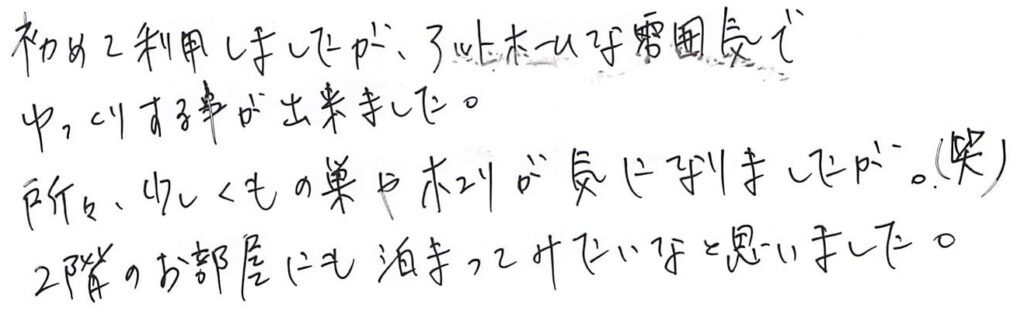 初めて利用しましたが、アットホームな雰囲気で
ゆっくりする事が出来ました。
所々、少しくもの巣やホコリが気になりましたが。(笑)
2階のお部屋にも泊まってみたいなと思いました。